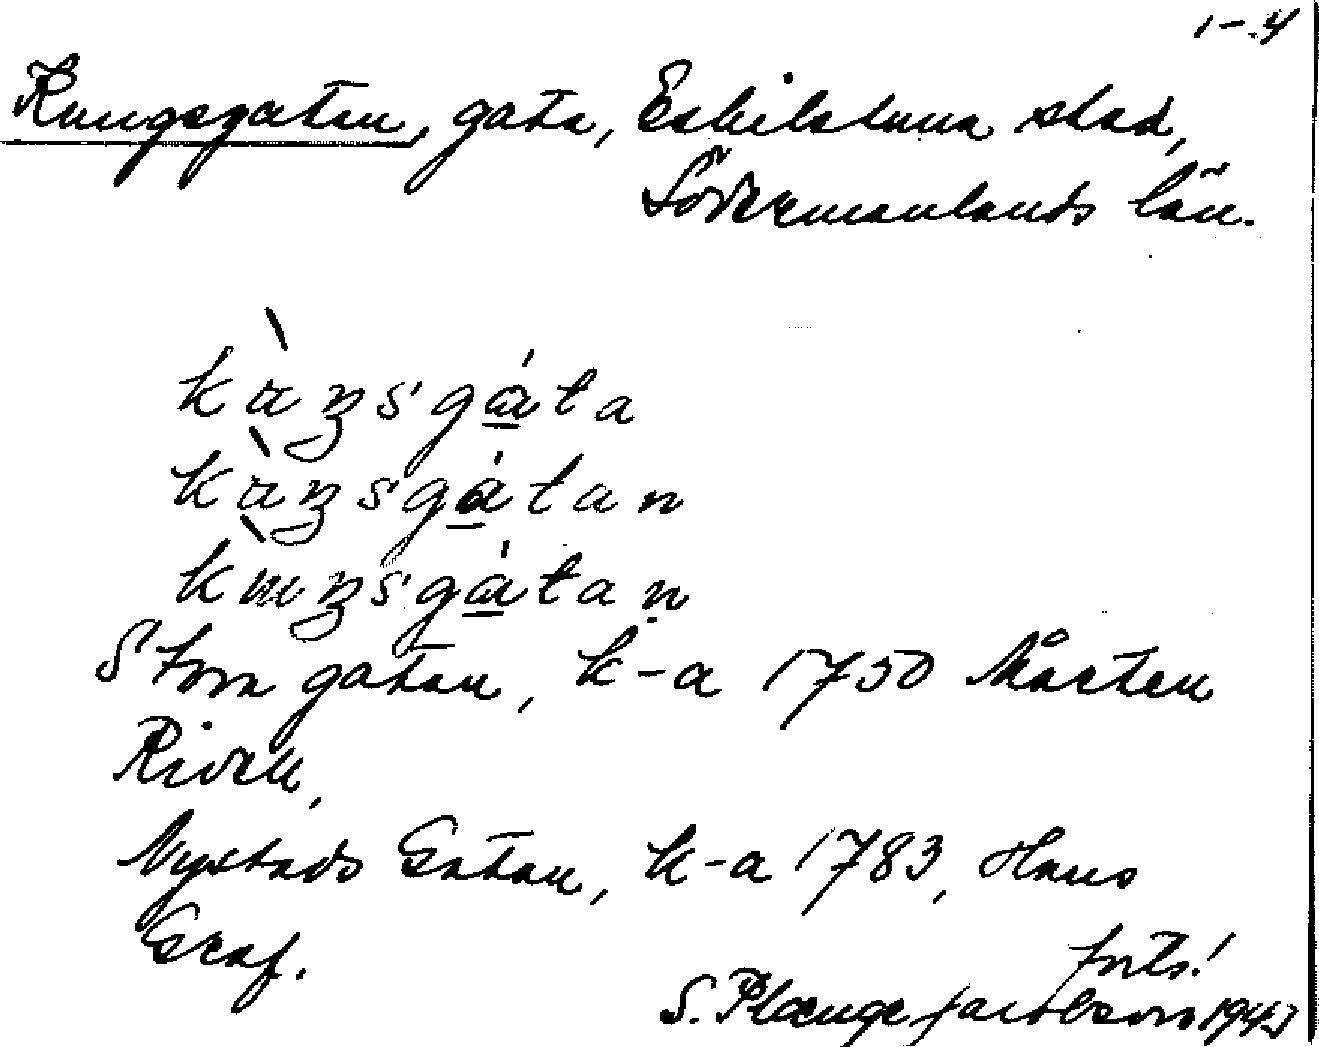 1-4
Kungsgatan, gata, Eskilstuna stad,
Södermanlands län.
kàŋsgáta
kàŋsgátan
kɯ̀ŋsgátaṇ
Stora gatan, k-a 1750 Mårten
Riven,
Nystads Gatan, k-a 1783, Hans
Graf.
forts!
S. Plænge Jacobson 1947